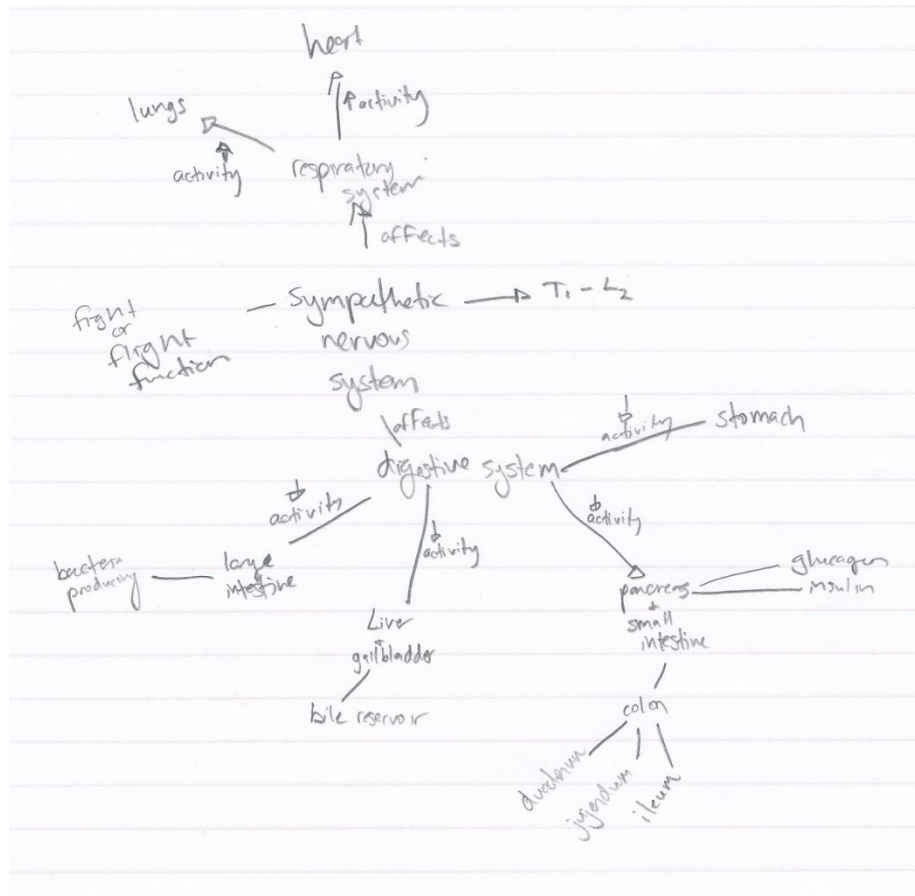 heart
↑ activity
lungs
↑
activity
respiratory
system
affects
Sympathetic
nervous
system
T₁ - L₂
fight
or
flight
function
affects
digestive system
↓
activity
stomach
↓
activity
large
intestine
bacteria
producing
↓
activity
Liver
+
gallbladder
bile reservoir
↓
activity
pancreas
+
small
intestine
glucagen
insulin
colen
duedenum
jujendum
ileum